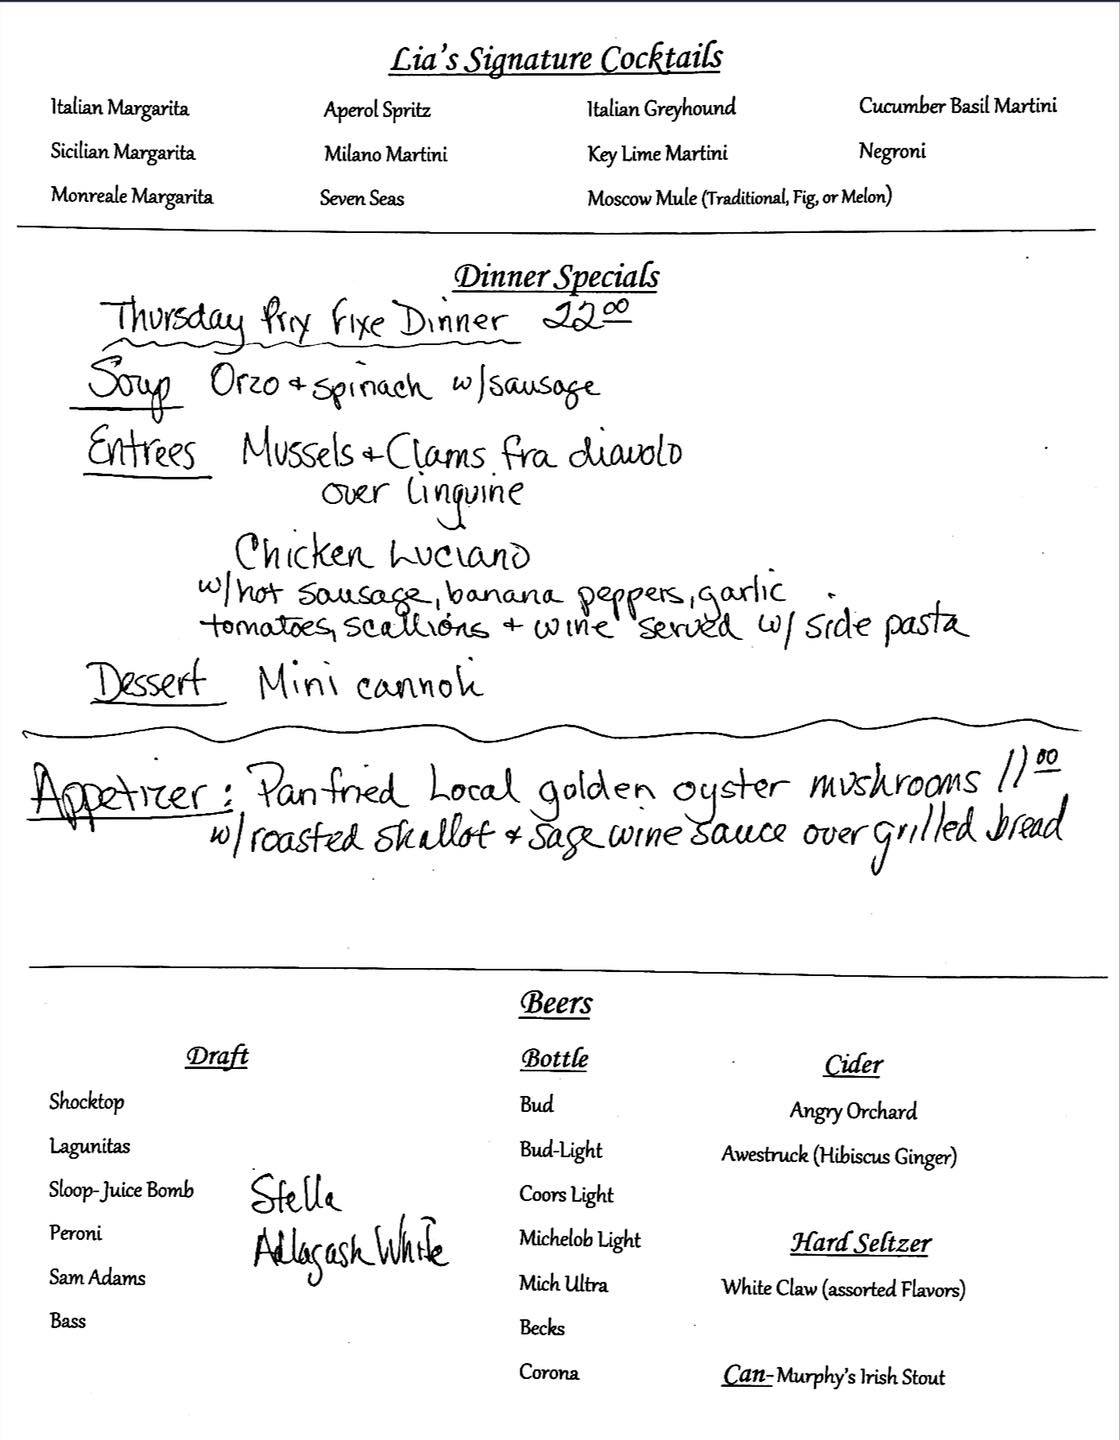 Lia's Signature Cocktails
Italian Margarita Aperol Spritz Italian Greyhound Cucumber Basil Martini
Sicilian Margarita Milano Martini Key Lime Martini Negroni
Monreale Margarita Seven Seas Moscow Mule (Traditional, Fig, or Melon)
Dinner Specials
Thursday Prix Fixe Dinner 22.00
Soup Orzo + spinach w/sausage
Entrees Mussels + Clams fra diavolo
over linguine
Chicken Luciano
w/hot sausage, banana peppers, garlic
tomatoes, scallions + wine served w/ side pasta
Dessert Mini cannoli
Appetizer: Panfried Local golden oyster mushrooms 11.00
w/roasted shallot + sage wine sauce over grilled bread
Beers
Draft
Shocktop
Lagunitas
Sloop-Juice Bomb
Peroni
Sam Adams
Bass
Stella
Allagash White
Bottle
Bud
Bud-Light
Coors Light
Michelob Light
Mich Ultra
Becks
Corona
Cider
Angry Orchard
Awestruck (Hibiscus Ginger)
Hard Seltzer
White Claw (assorted Flavors)
Can-Murphy's Irish Stout